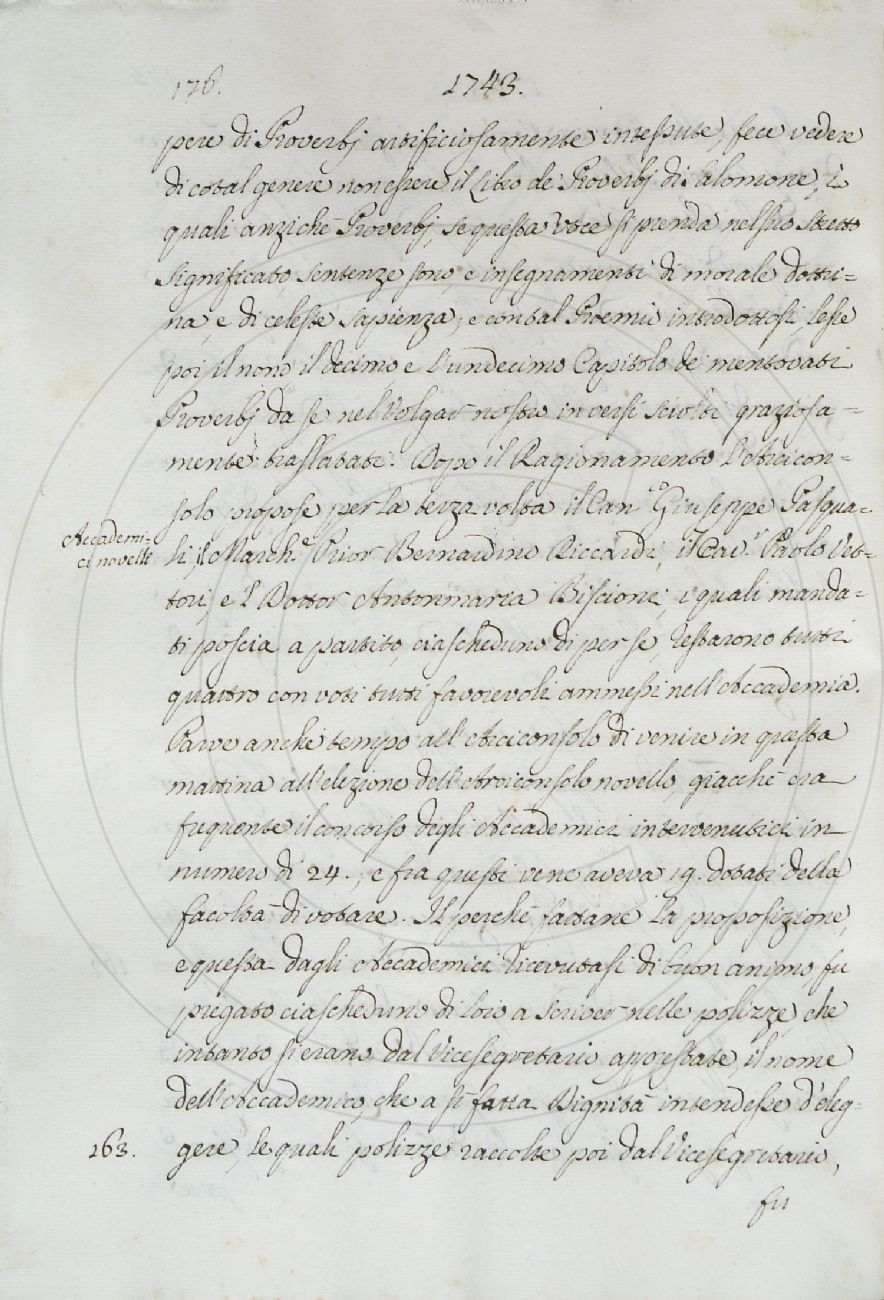 176.
1743.
pere di Proverbj artificiosamente intessute, fece vedere
di cotal genere non essere il Libro de' Proverbj di Salomone, i
quali anzichè Proverbj, se questa voce si prenda nel suo stretto
significato, sentenze sono, e insegnamenti di morale dottri=
na, e di celeste sapienza; e con tal Proemio introdottosi, lesse
poi il nono il decimo e l'undecimo Capitolo de' mentovati
Proverbj da se nel Volgar nostro in versi sciolti graziosa=
mente traslatati. Dopo il Ragionamento l'Arcicon=
solo propose per la terza volta il Can.co Giuseppe Pasqua=
Accademi=
ci novelli
li, il March.e Prior Bernardino Riccardi, il Cav.r Paolo Vet=
tori, e 'l Dottor Antonmaria Biscioni, i quali manda=
ti poscia a partito, ciascheduno di per se, restarono tutti
quattro con voti tutti favorevoli ammessi nell'Accademia.
Parve anche tempo all'Arciconsolo di venire in questa
mattina all'elezione dell'Arciconsolo novello, giacchè era
frequente il concorso degli Accademici intervenutici in
numero di 24., e fra questi ve ne aveva 19. dotati della
facoltà di votare. Il perchè fattane la proposizione,
e questa dagli Accademici ricevutasi di buon animo, fu
pregato ciascheduno di loro a scriver nelle polizze, che
intanto si erano dal Vicesegretario apprestate, il nome
dell'Accademico, che a sì fatta Dignità intendesse d'eleg=
263.
gere, le quali polizze raccolte poi dal Vicesegretario,
fu